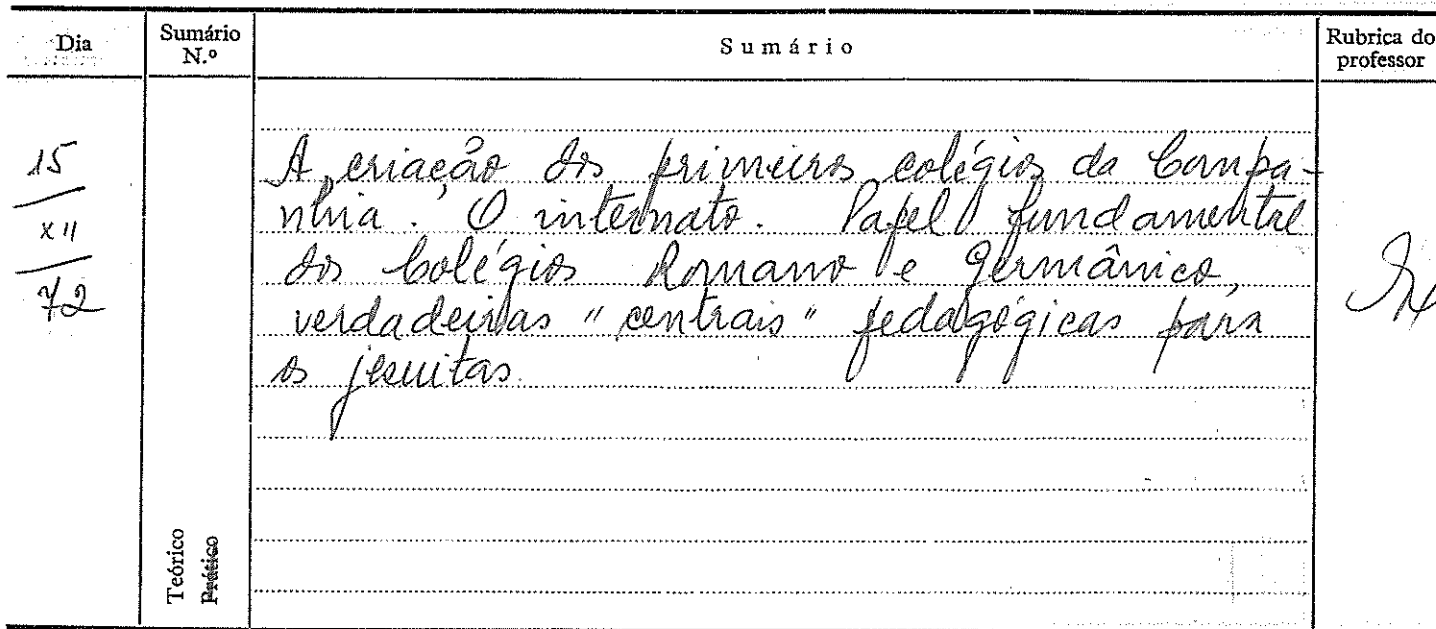 Dia
Sumário N.º
Sumário
Rubrica do professor
15
XII
72
A criação dos primeiros colégios da Compa-
nhia. O internato. Papel fundamental
dos Colégios Romano e Germânico,
verdadeiras "centrais" pedagógicas para
os jesuitas.
Teórico
Prático